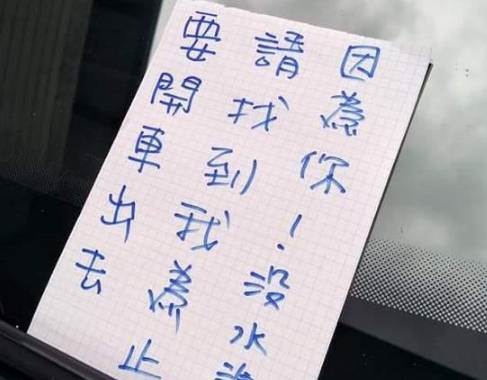 因為你！没水
請找到我為止
要開車出去